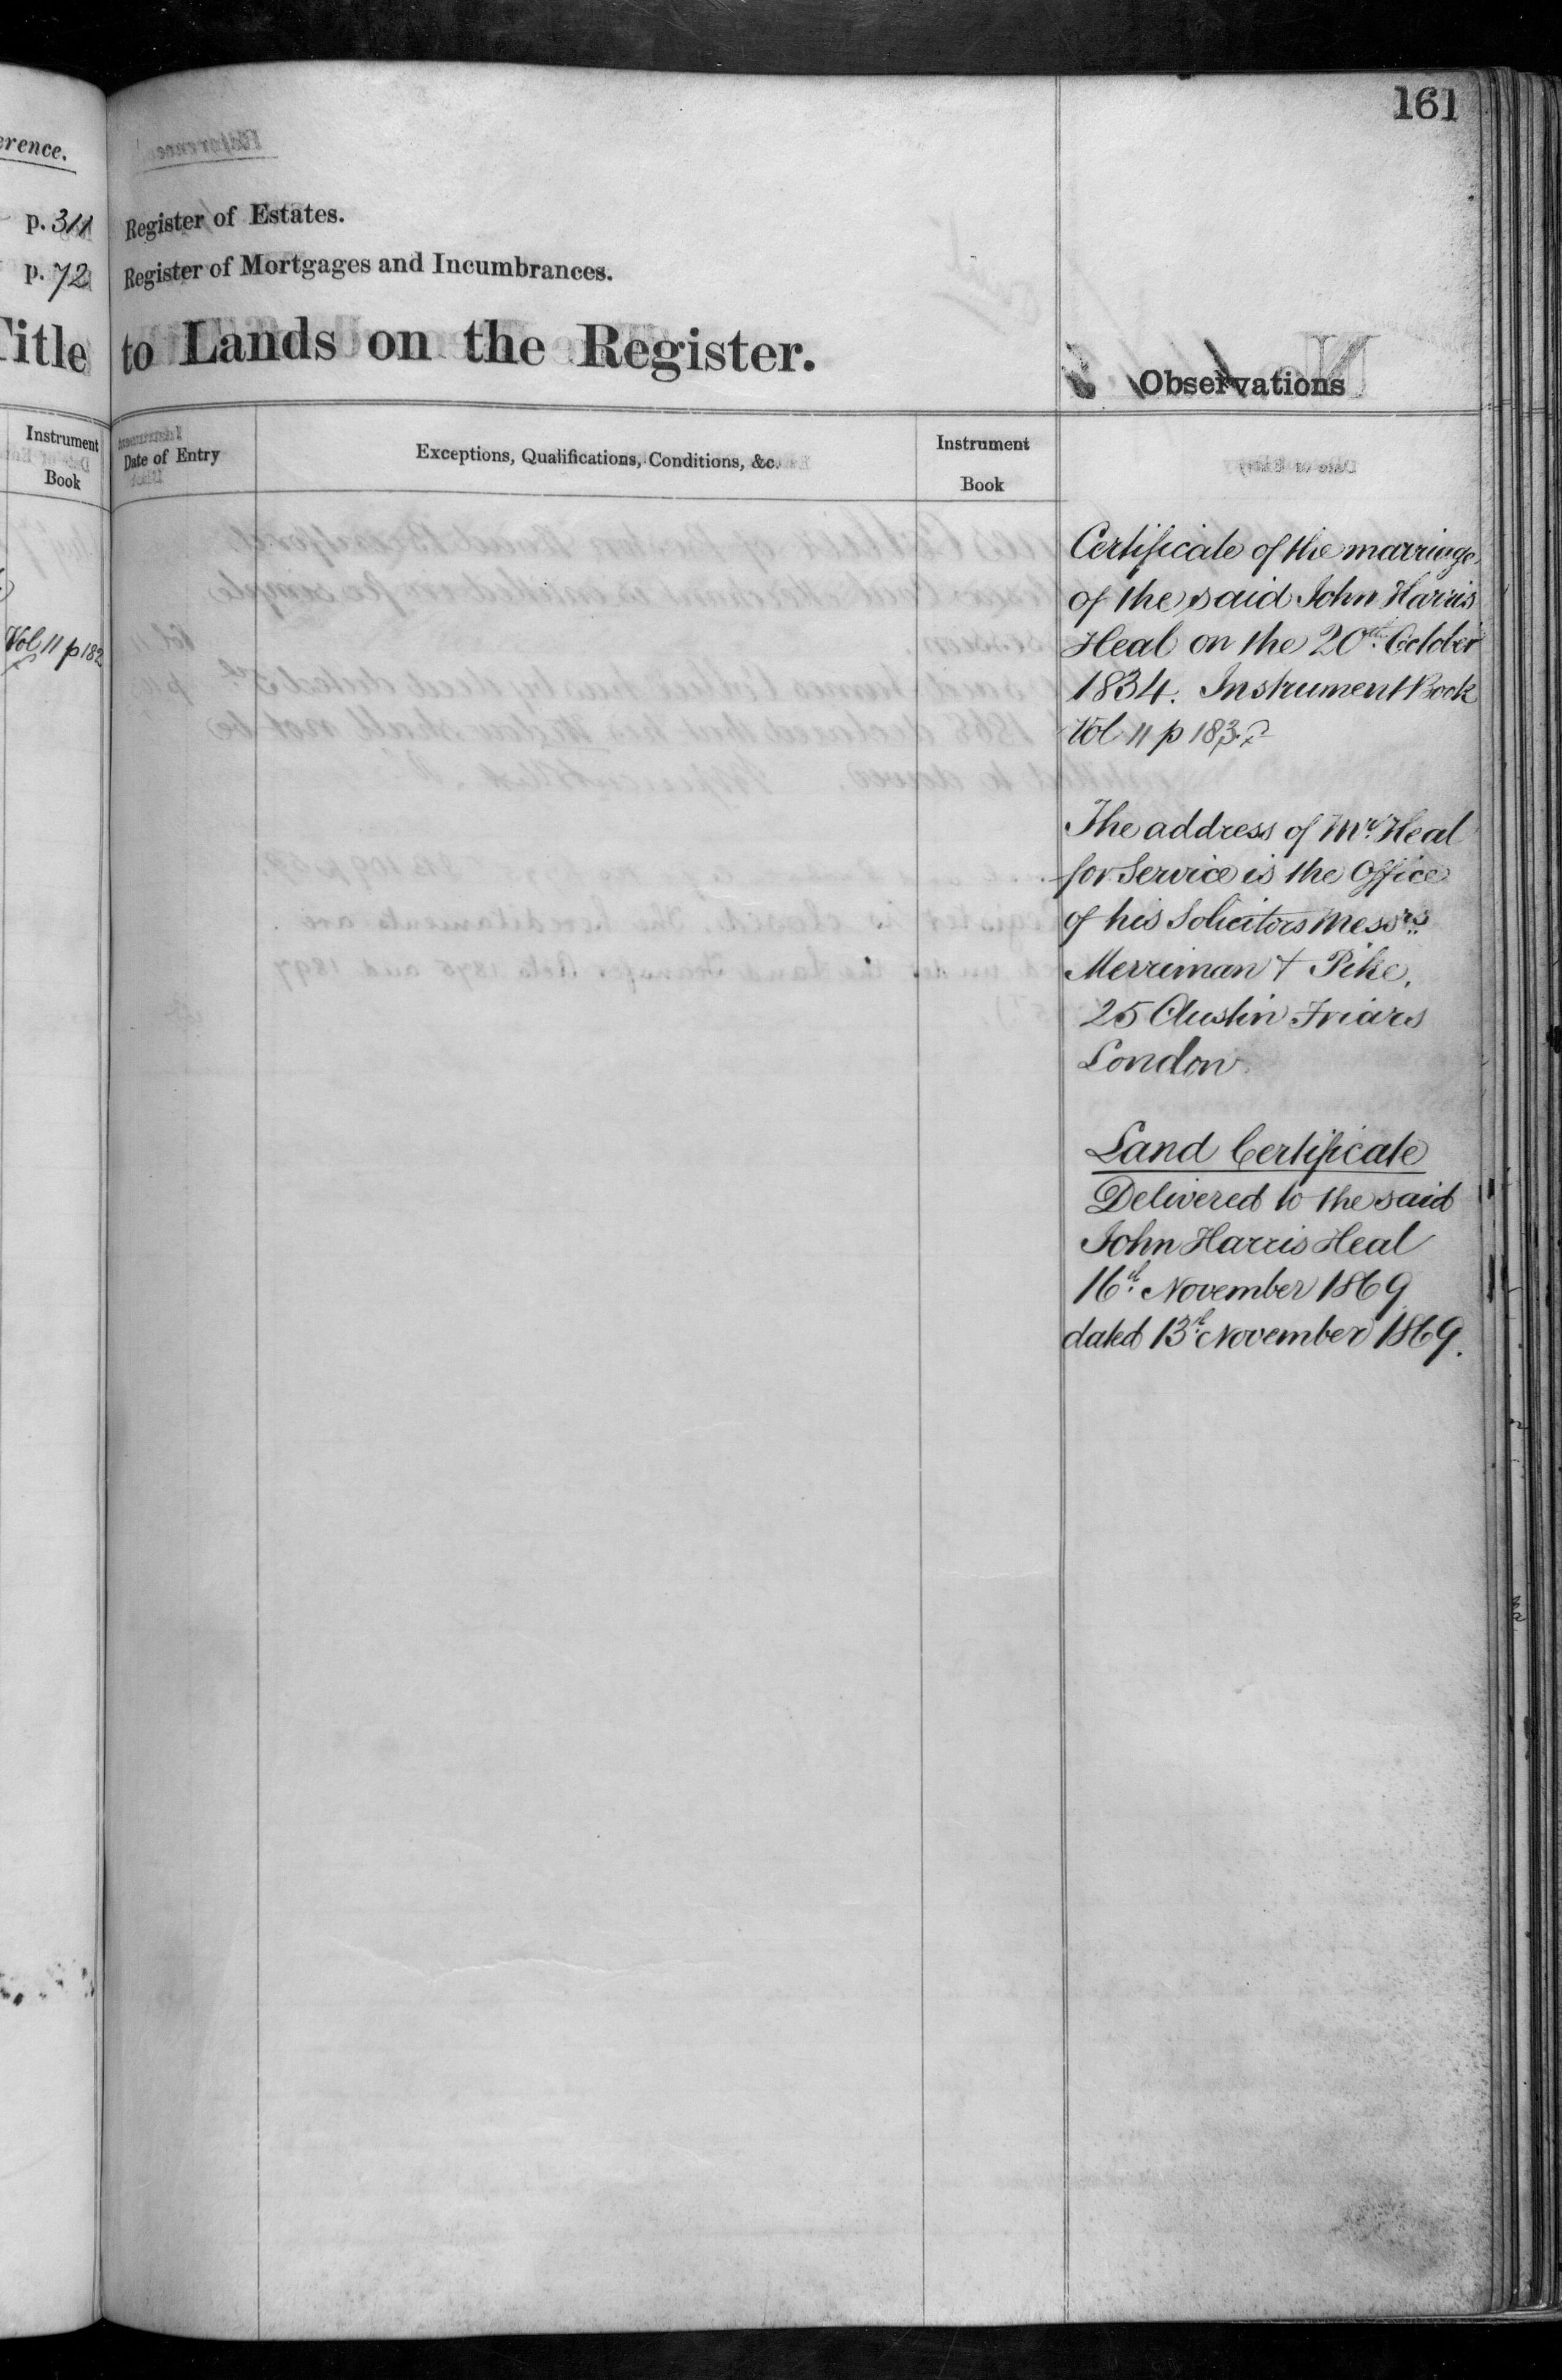 161
erence.
p. 311
Register of Estates.
p. 72
Register of Mortgages and Incumbrances.
Title to Lands on the Register.
Observations
Instrument Book
Date of Entry
Exceptions, Qualifications, Conditions, &c.
Instrument Book
Vol 11 p 182
Certificate of the marriage
of the said John Harris
Heal on the 20th October
1834. Instrument Book
Vol 11 p 183
The address of Mr. Heal
for Service is the Office
of his Solicitors Messrs
Merriman + Pike,
25 Austin Friars
London
Land Certificate
Delivered to the said
John Harris Heal
16th November 1869
dated 13th November 1869.